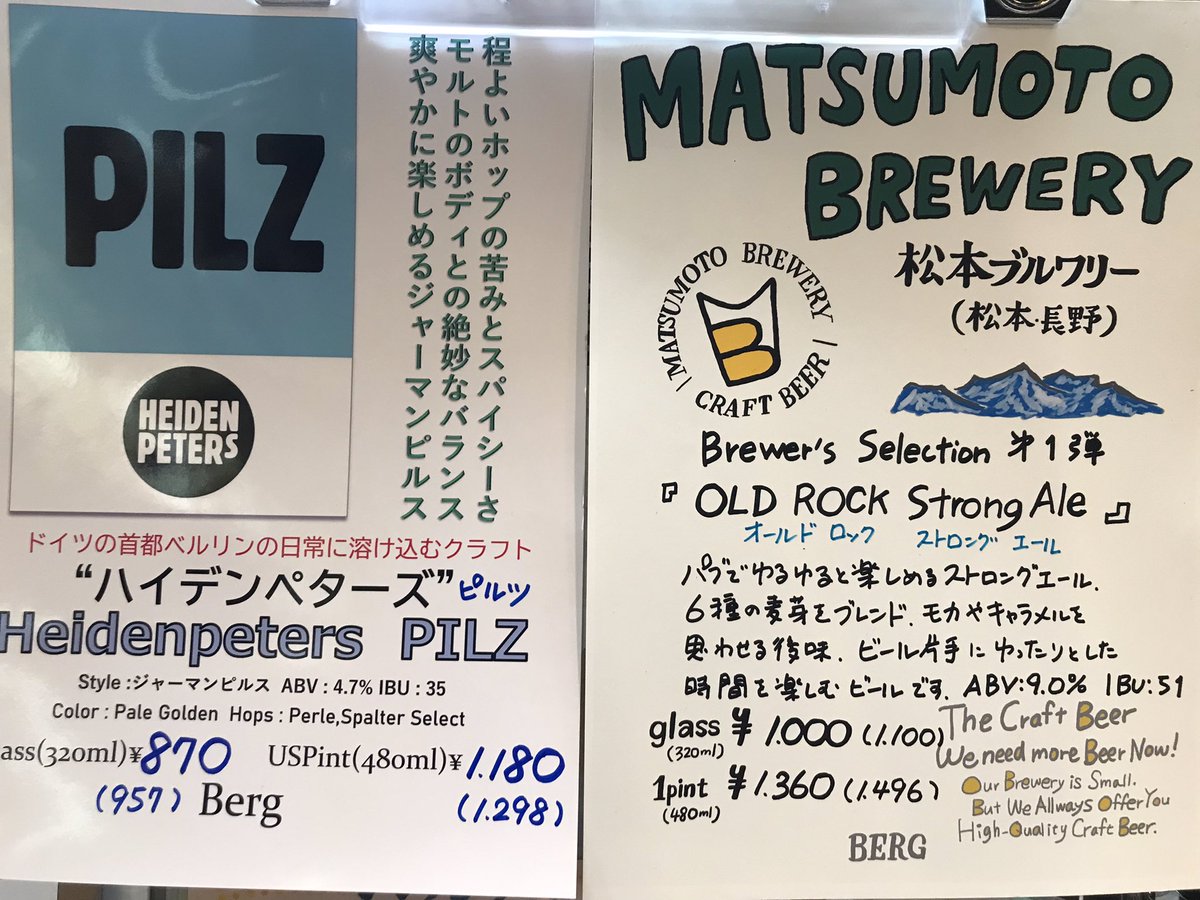 PILZ
HEIDEN
PETERS
程よいホップの苦みとスパイシーさ
モルトのボディとの絶妙なバランス
爽やかに楽しめるジャーマンピルス
ドイツの首都ベルリンの日常に溶け込むクラフト
“ハイデンペターズ”ピルツ
Heidenpeters PILZ
Style :ジャーマンピルス ABV : 4.7% IBU : 35
Color : Pale Golden Hops : Perle,Spalter Select
ass(320ml)¥870 USPint(480ml)¥1.180
(957) Berg (1.298)
MATSUMOTO
BREWERY
MATSUMOTO BREWERY
CRAFT BEER
B
松本ブルワリー
(松本・長野)
Brewer's Selection 第1弾
『OLD ROCK Strong Ale』
オールド ロック ストロング エール
パブでゆるゆると楽しめるストロングエール.
6種の麦芽をブレンド.モカやキャラメルを
思わせる後味.ビール片手にゆったりとした
時間を楽しむビールです. ABV:9.0% IBU:51
glass ¥1.000 (1.100)
(320ml)
1pint ¥1.360 (1.496)
(480ml)
The Craft Beer
We need more Beer Now!
Our Brewery is Small.
But We Allways Offer You
High-Quality Craft Beer.
BERG